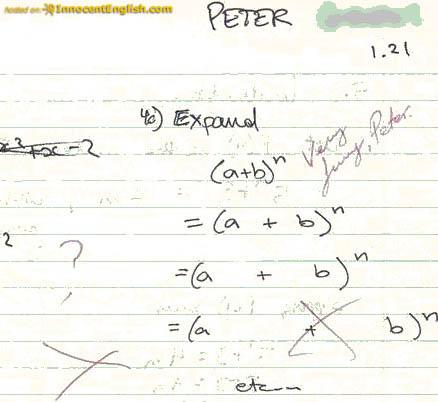 hosted on InnocentEnglish.com
PETER
1.21
4c) Expand
x³+x-2
Very funny, Peter.
(a+b)ⁿ
= (a + b)ⁿ
2
?
= (a + b)ⁿ
= (a + b)ⁿ
etc...